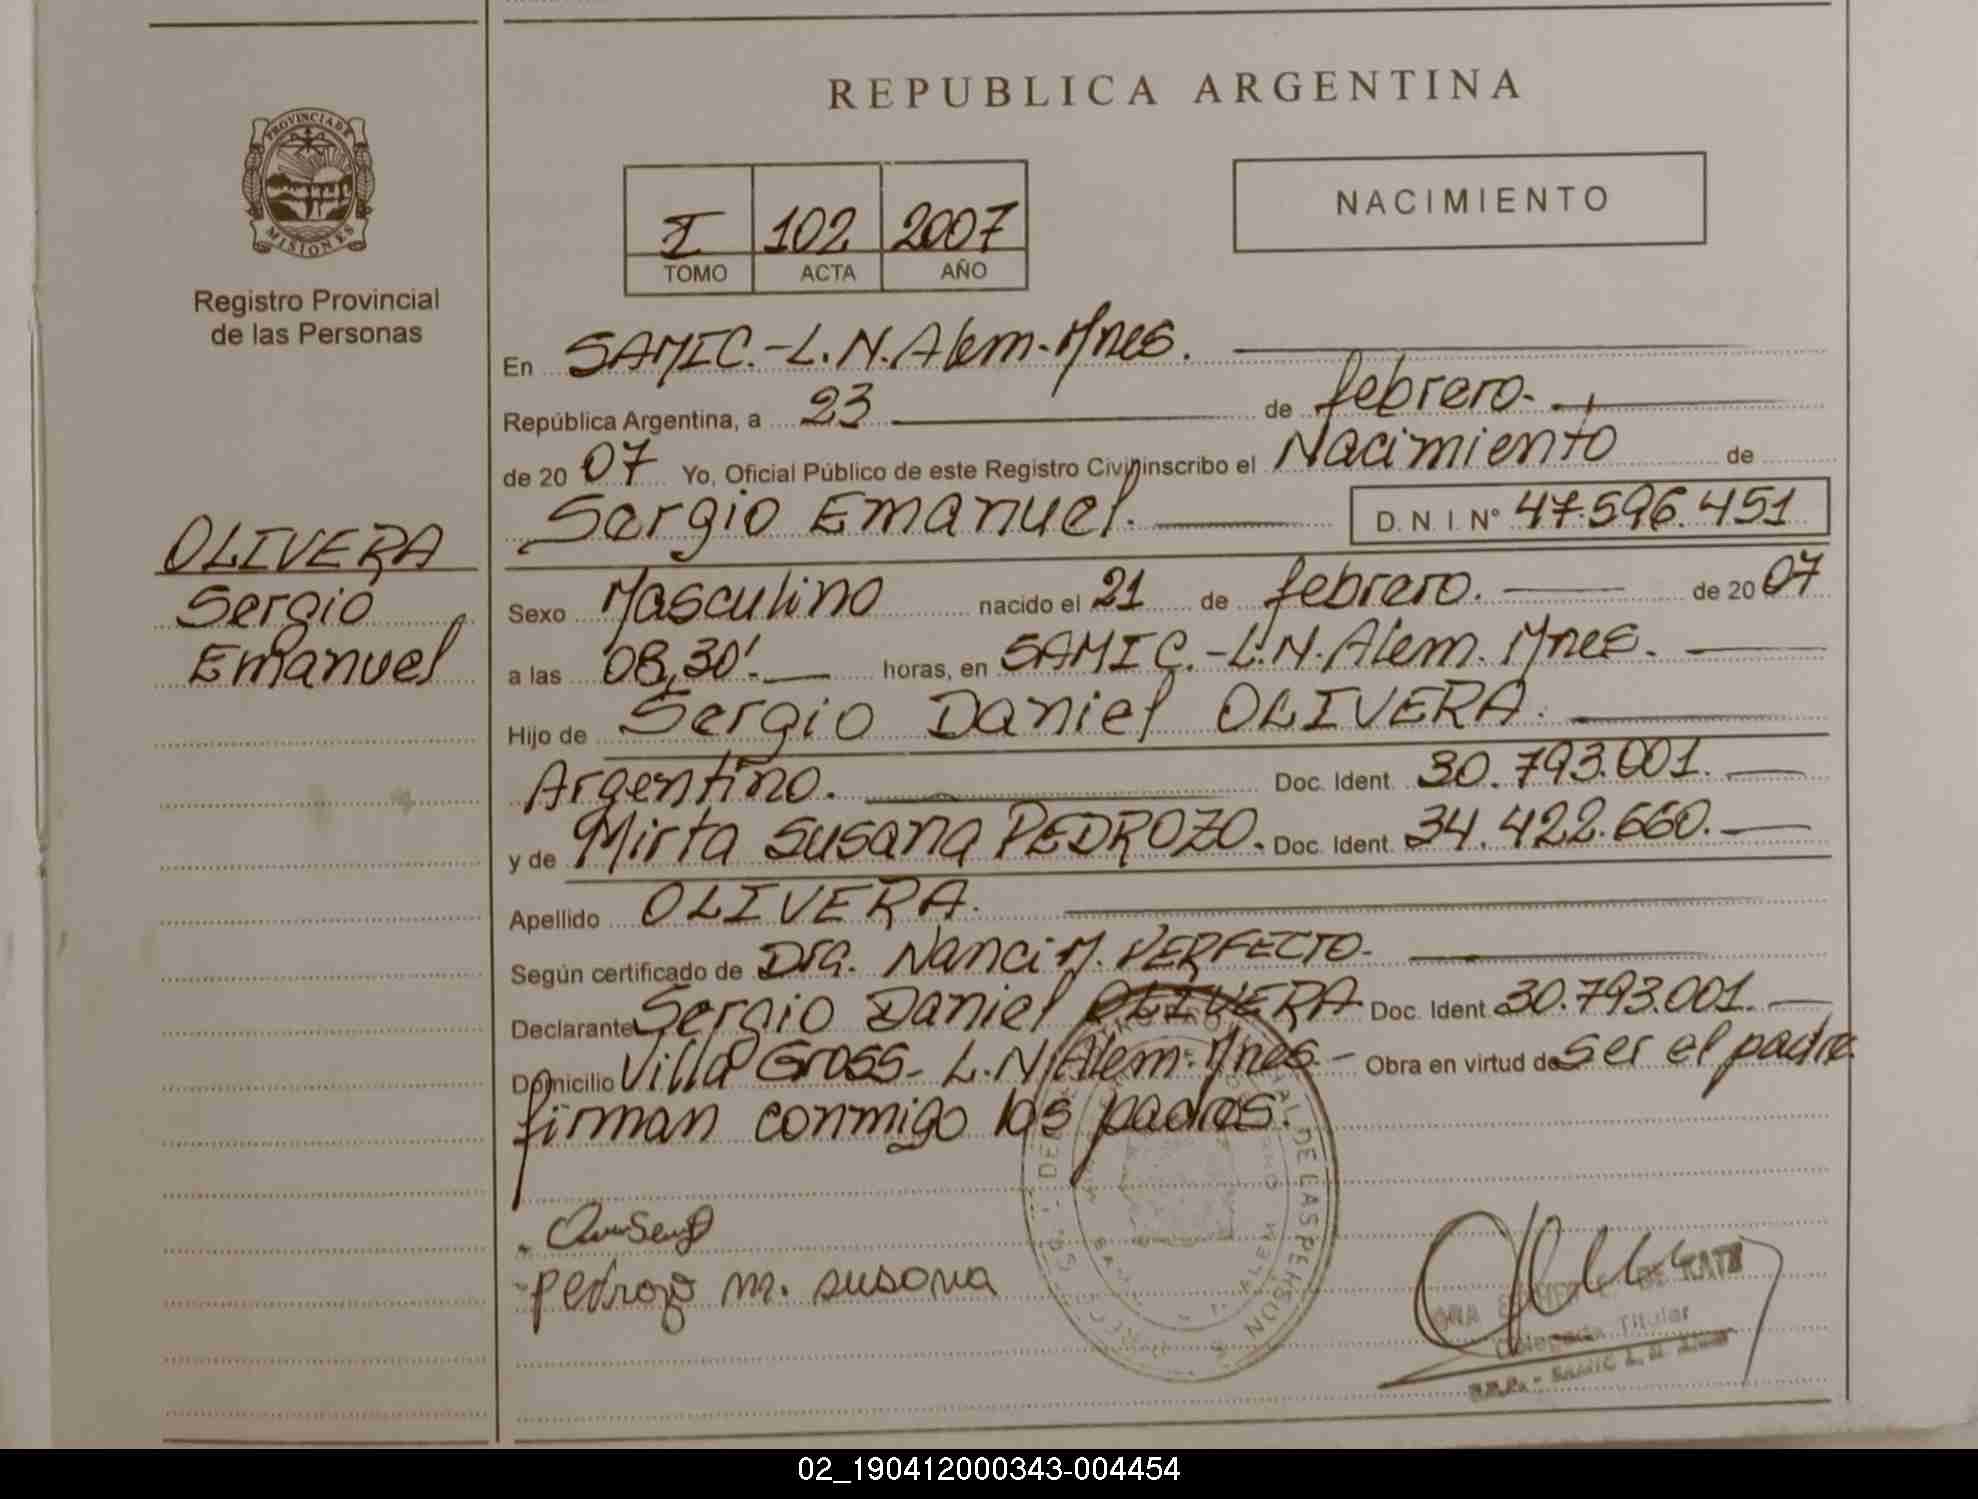 REPUBLICA ARGENTINA
PROVINCIA DE
MISIONES
Registro Provincial
de las Personas
I 102 2007
TOMO ACTA AÑO
NACIMIENTO
En SAMIC.-L.N.Alem-Mnes.
República Argentina, a 23 de febrero.
de 20 07 Yo, Oficial Público de este Registro Civil inscribo el Nacimiento de
Sergio Emanuel. D.N.I Nº 47.596.451
OLIVERA
Sergio
Emanuel
Sexo Masculino nacido el 21 de febrero. de 20 07
a las 08,30'. horas, en SAMIC.-L.N.Alem. Mnes.
Hijo de Sergio Daniel OLIVERA.
Argentino. Doc. Ident. 30.793.001.
y de Mirta Susana PEDROZO. Doc. Ident. 34.422.660.
Apellido OLIVERA.
Según certificado de Dra. Nanci M. PERFECTO-
Declarante Sergio Daniel OLIVERA Doc. Ident 30.793.001.
Domicilio Villa Gross- L.N.Alem-Mnes- Obra en virtud de ser el padre
firman conmigo los padres.
pedrozo m. susana
DE LAS PERSONAS
DE KATZ
Delegada Titular
R.P.P. - SAMIC L. N. Alem
02_190412000343-004454